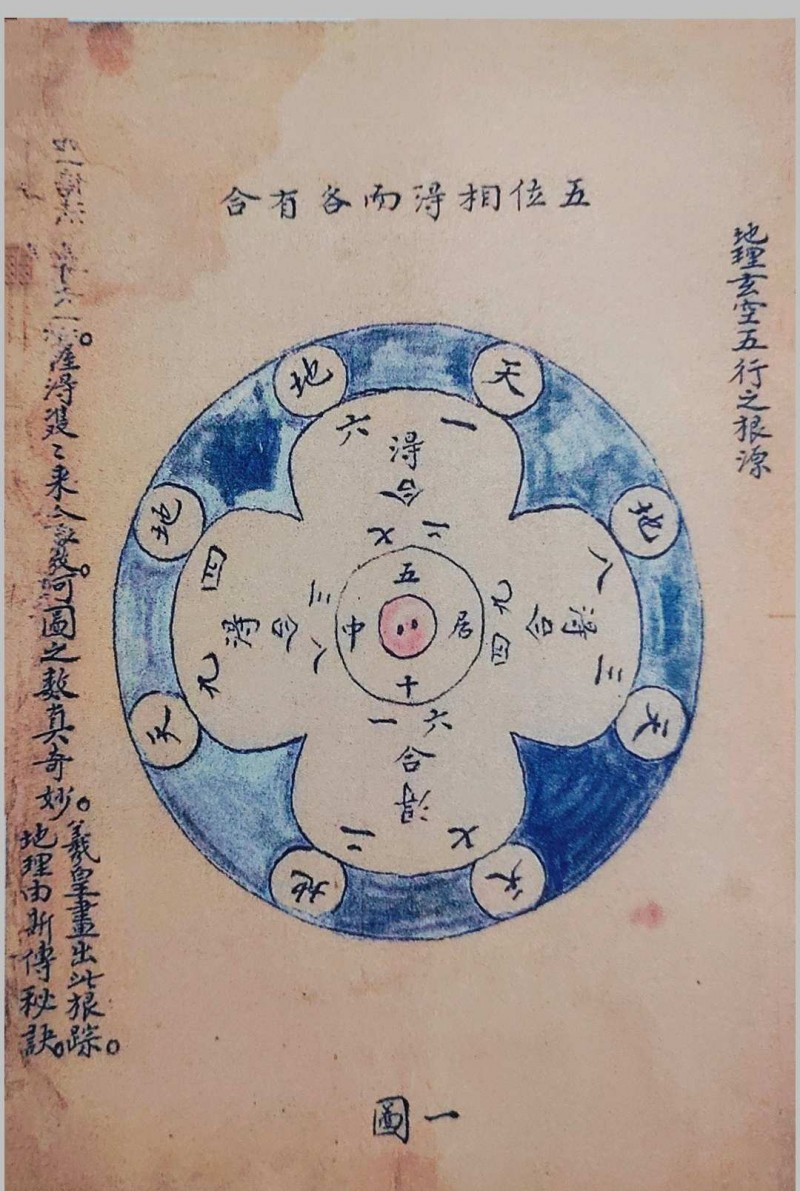 地理玄空五行之根源
五位相得而各有合
天
地
一
六
得
合
二七
地
天
八
三
得
合
九四
地
天
四
九
得
合
三八
五
居
十
中
六一
合
得
七
二
天
地
得
来
河圖之數真奇妙。
羲皇畫出此根踪。
地理由斯傳秘訣。
圖一